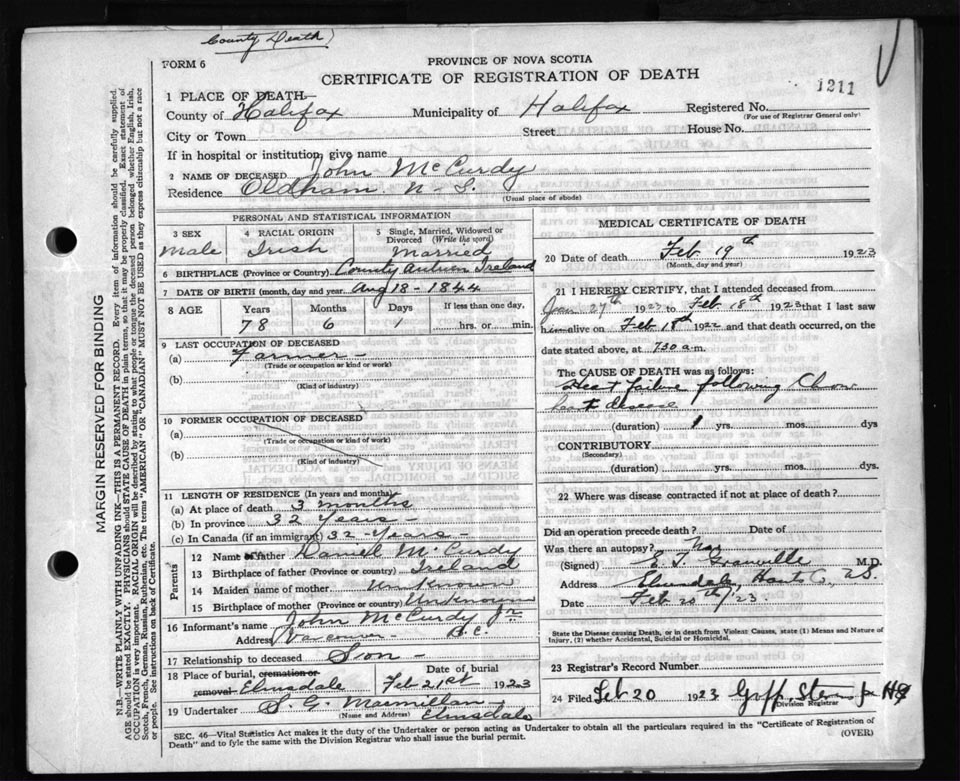 County Death)
FORM 6
PROVINCE OF NOVA SCOTIA
CERTIFICATE OF REGISTRATION OF DEATH
1211
1 PLACE OF DEATH—
County of Halifax Municipality of Halifax Registered No.
(For use of Registrar General only)
City or Town Street House No.
If in hospital or institution, give name
2 NAME OF DECEASED John McCurdy
Residence Oldham N. S.
(Usual place of abode)
PERSONAL AND STATISTICAL INFORMATION
3 SEX 4 RACIAL ORIGIN 5 Single, Married, Widowed or Divorced (Write the word)
Male Irish Married
6 BIRTHPLACE (Province or Country) County Ireland
7 DATE OF BIRTH (month, day and year) Aug 18 - 1844
8 AGE Years Months Days If less than one day,
78 6 1 hrs. or min.
9 LAST OCCUPATION OF DECEASED
(a) Farmer -
(Trade or occupation or kind of work)
(b)
(Kind of industry)
10 FORMER OCCUPATION OF DECEASED
(a)
(Trade or occupation or kind of work)
(b)
(Kind of industry)
11 LENGTH OF RESIDENCE (In years and months)
(a) At place of death 3 months
(b) In province 32 Years -
(c) In Canada (if an immigrant) 32 - Years -
Parents
12 Name of father Daniel McCurdy
13 Birthplace of father (Province or country) Ireland
14 Maiden name of mother Unknown
15 Birthplace of mother (Province or country) Unknown
16 Informant's name John McCurdy Jr
Address Vancouver B.C.
17 Relationship to deceased Son -
18 Place of burial, cremation or removal Elmsdale Date of burial Feb 21st 1923
19 Undertaker S. G. Macmillan
(Name and Address) Elmsdale
MEDICAL CERTIFICATE OF DEATH
20 Date of death Feb 19th 1923
(Month, day and year)
21 I HEREBY CERTIFY, that I attended deceased from
Jan 27th 192 to Feb 18th 1923 that I last saw
him alive on Feb 18th 1922 and that death occurred, on
date stated above, at 7.30 a.m.
The CAUSE OF DEATH was as follows:
Heart failure following Chron
heart disease
(duration) 1 yrs. mos. dys
CONTRIBUTORY
(Secondary)
(duration) yrs. mos. dys.
22 Where was disease contracted if not at place of death?
Did an operation precede death? Date of
Was there an autopsy? No
(Signed) M.D.
Address Elmsdale, Hants Co, N.S.
Date Feb 20th/23
State the Disease causing Death, or in death from Violent Causes, state (1) Means and Nature of
Injury, (2) whether Accidental, Suicidal or Homicidal.
23 Registrar's Record Number
24 Filed Feb 20 1923
Division Registrar
SEC. 46—Vital Statistics Act makes it the duty of the Undertaker or person acting as Undertaker to obtain all the particulars required in the "Certificate of Registration of
Death" and to fyle the same with the Division Registrar who shall issue the burial permit. (OVER)
MARGIN RESERVED FOR BINDING
N.B.—WRITE PLAINLY WITH UNFADING INK—THIS IS A PERMANENT RECORD. Every item of information should be carefully supplied.
AGE should be stated EXACTLY. PHYSICIANS should STATE CAUSE OF DEATH in plain terms, so that it may be properly classified. Exact statement of
OCCUPATION is very important. RACIAL ORIGIN will be described by stating to what people or tongue the deceased person belonged whether English, Irish,
Scotch, French, German, Russian, Ruthenian, etc. The terms "AMERICAN" or "CANADIAN" MUST NOT BE USED as they express citizenship but not a race
or people. See instructions on back of Certificate.